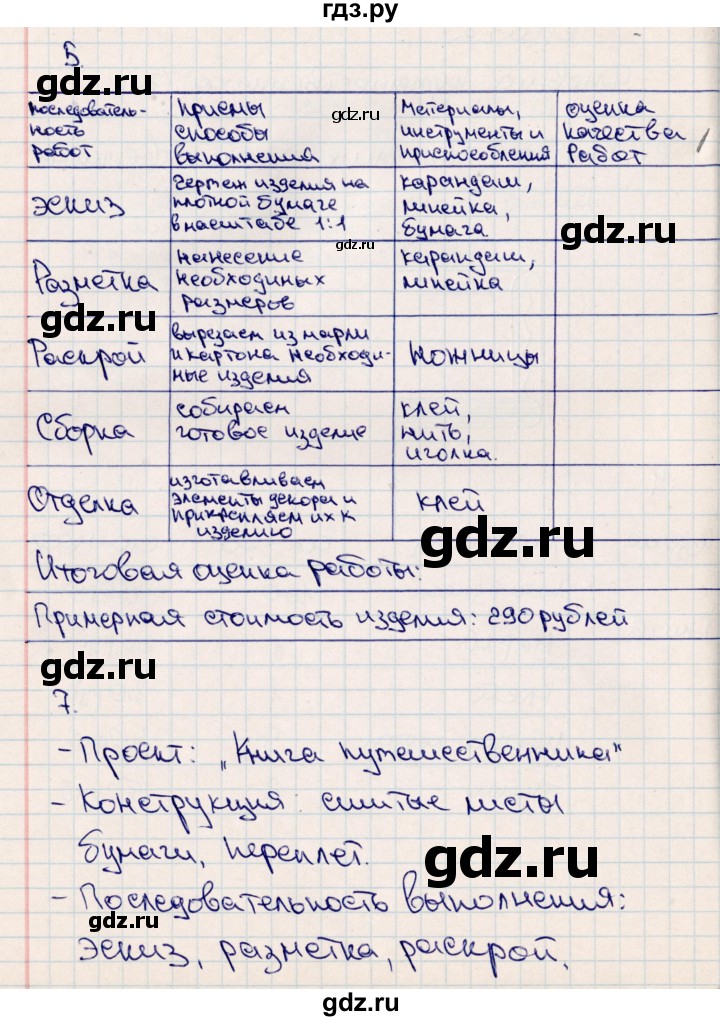 гдз.ру
5.
gdz.ru
последователь-
ность
работ
приемы
способы
выполнения
gdz.ru
Материалы,
инструменты и
приспособления
оценка
качества
работ
gdz.ru
эскиз
Чертеж изделия на
плотной бумаге
в масштабе 1:1
gdz.ru
карандаш,
линейка,
бумага
gdz.ru
Разметка
нанесение
необходимых
размеров
карандаш,
линейка
Раскрой
вырезаем из марли
и картона необходи-
мые изделия
gdz.ru
ножницы
Сборка
собираем
готовое изделие
клей,
нить,
иголка.
Отделка
изготавливаем
элементы декора и
прикрепляем их к
изделию
клей
gdz.ru
Итоговая оценка работы:
Примерная стоимость изделия: 290 рублей
gdz.ru
7.
gdz.ru
- Проект: „Книга путешественника"
- Конструкция: сшитые листы
бумаги, переплет.
gdz.ru
- Последовательность выполнения:
gdz.ru
эскиз, разметка, раскрой,
gdz.ru